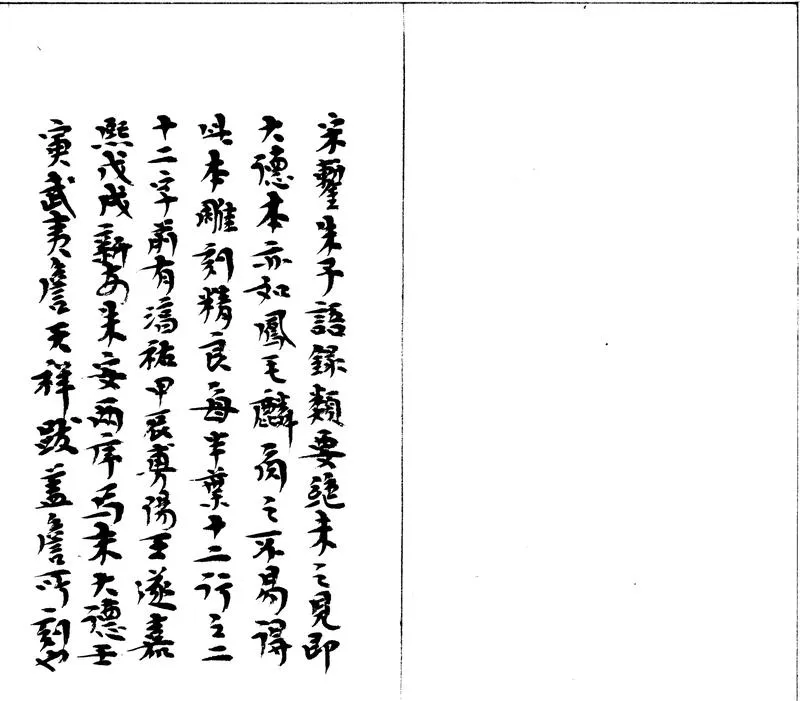 宋鏨朱子語録類要絶未之見即
大德本亦如鳳毛麟角之不易得
此本雕刻精良每半葉十二行之二
十二字前有淳祐甲辰鄱陽王遂嘉
熙戊戌新安朱安兩序焉末大德壬
寅武夷詹天祥跋蓋詹所刻也